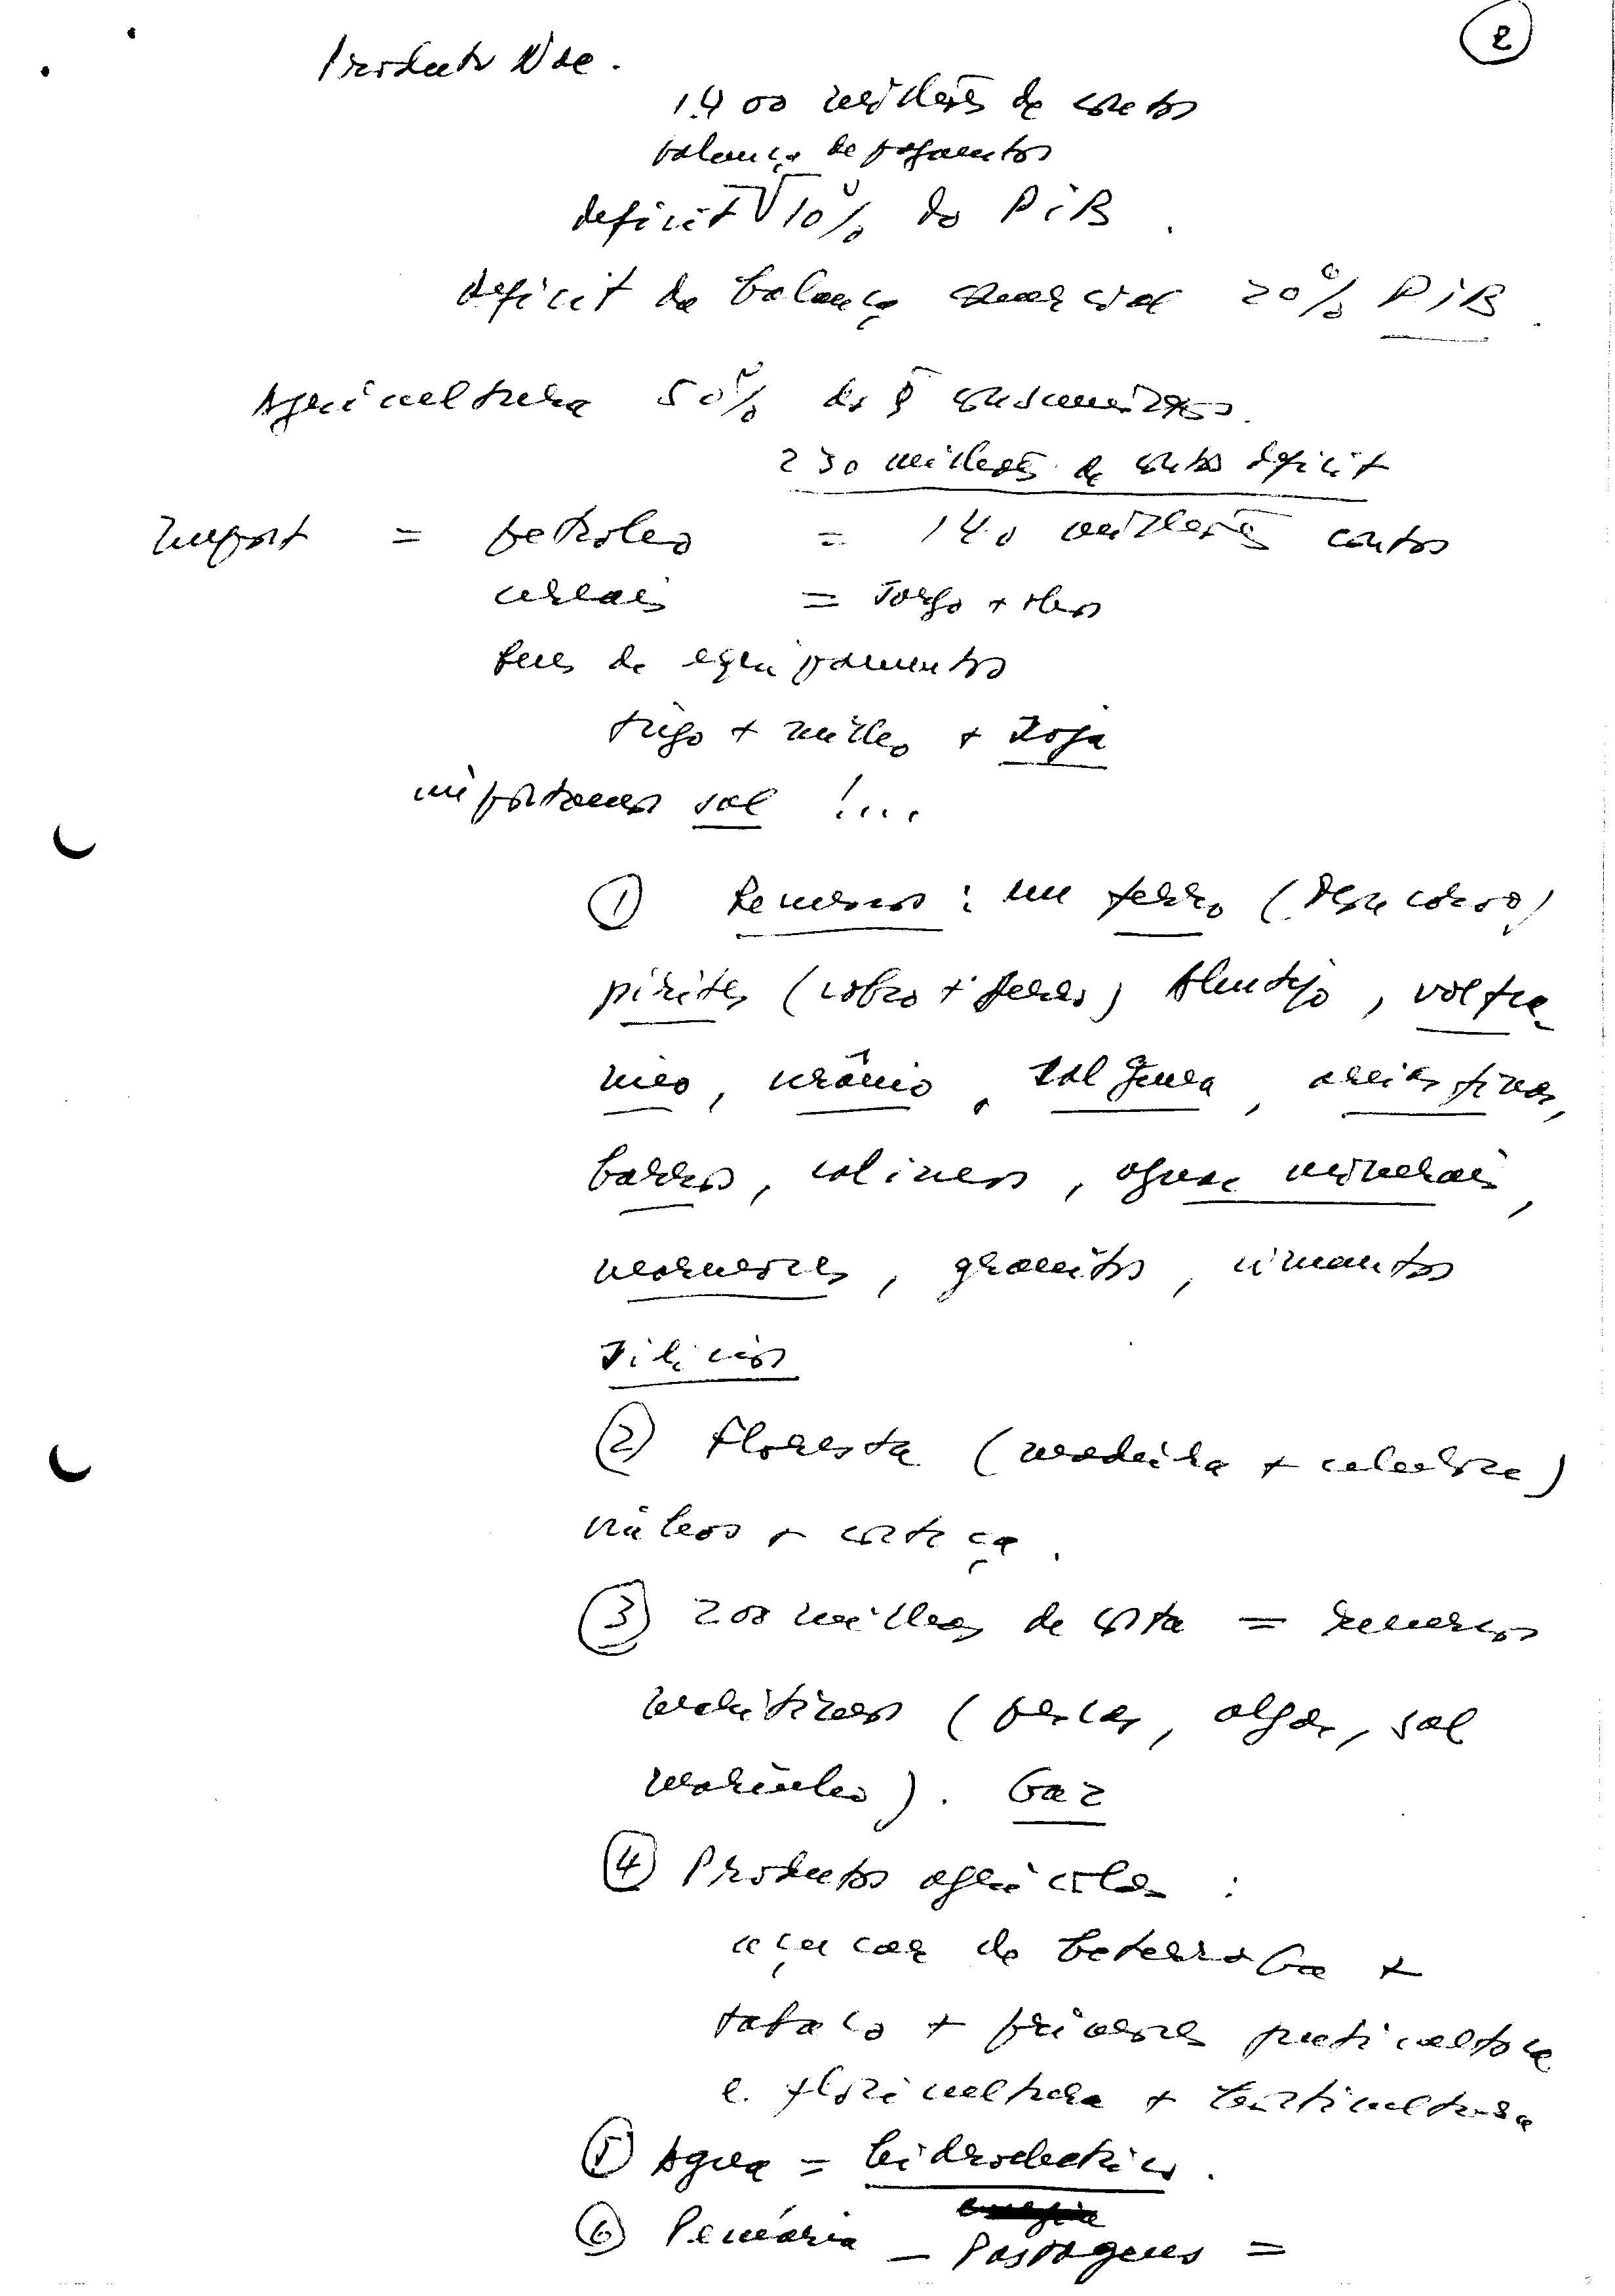 2
Produto Nac.
1.400 milhões de contos
balança de pagamentos
deficit 10% do PiB
deficit da balança comercial 20% PiB
Agricultura 50% do q consumimos.
230 milhões de contos deficit
Import = petroleo = 140 milhões contos
cereais = sorgo + oleos
bens de equipamentos
trigo + milho + soja
importamos sal !...
① Recursos : ferro (
pirites (cobro + ferro) Alentejo, volfra-
mio, urânio, sal gema, areias finas,
barros, calinos, aguas minerais,
marmores, granitos, cimentos
silicios
② Floresta (madeira + celulose)
+ cortiça.
③ 200 milhas de costa = recursos
maritimos (pescas, algas, sal
marinho). Gaz
④ Produtos agricolas :
açucar de beterraba +
tabaco + primores fruticultora
e floricultura + horticultura
⑤ Agua = hidroelectrica.
⑥ Pecuária - Pastagens =